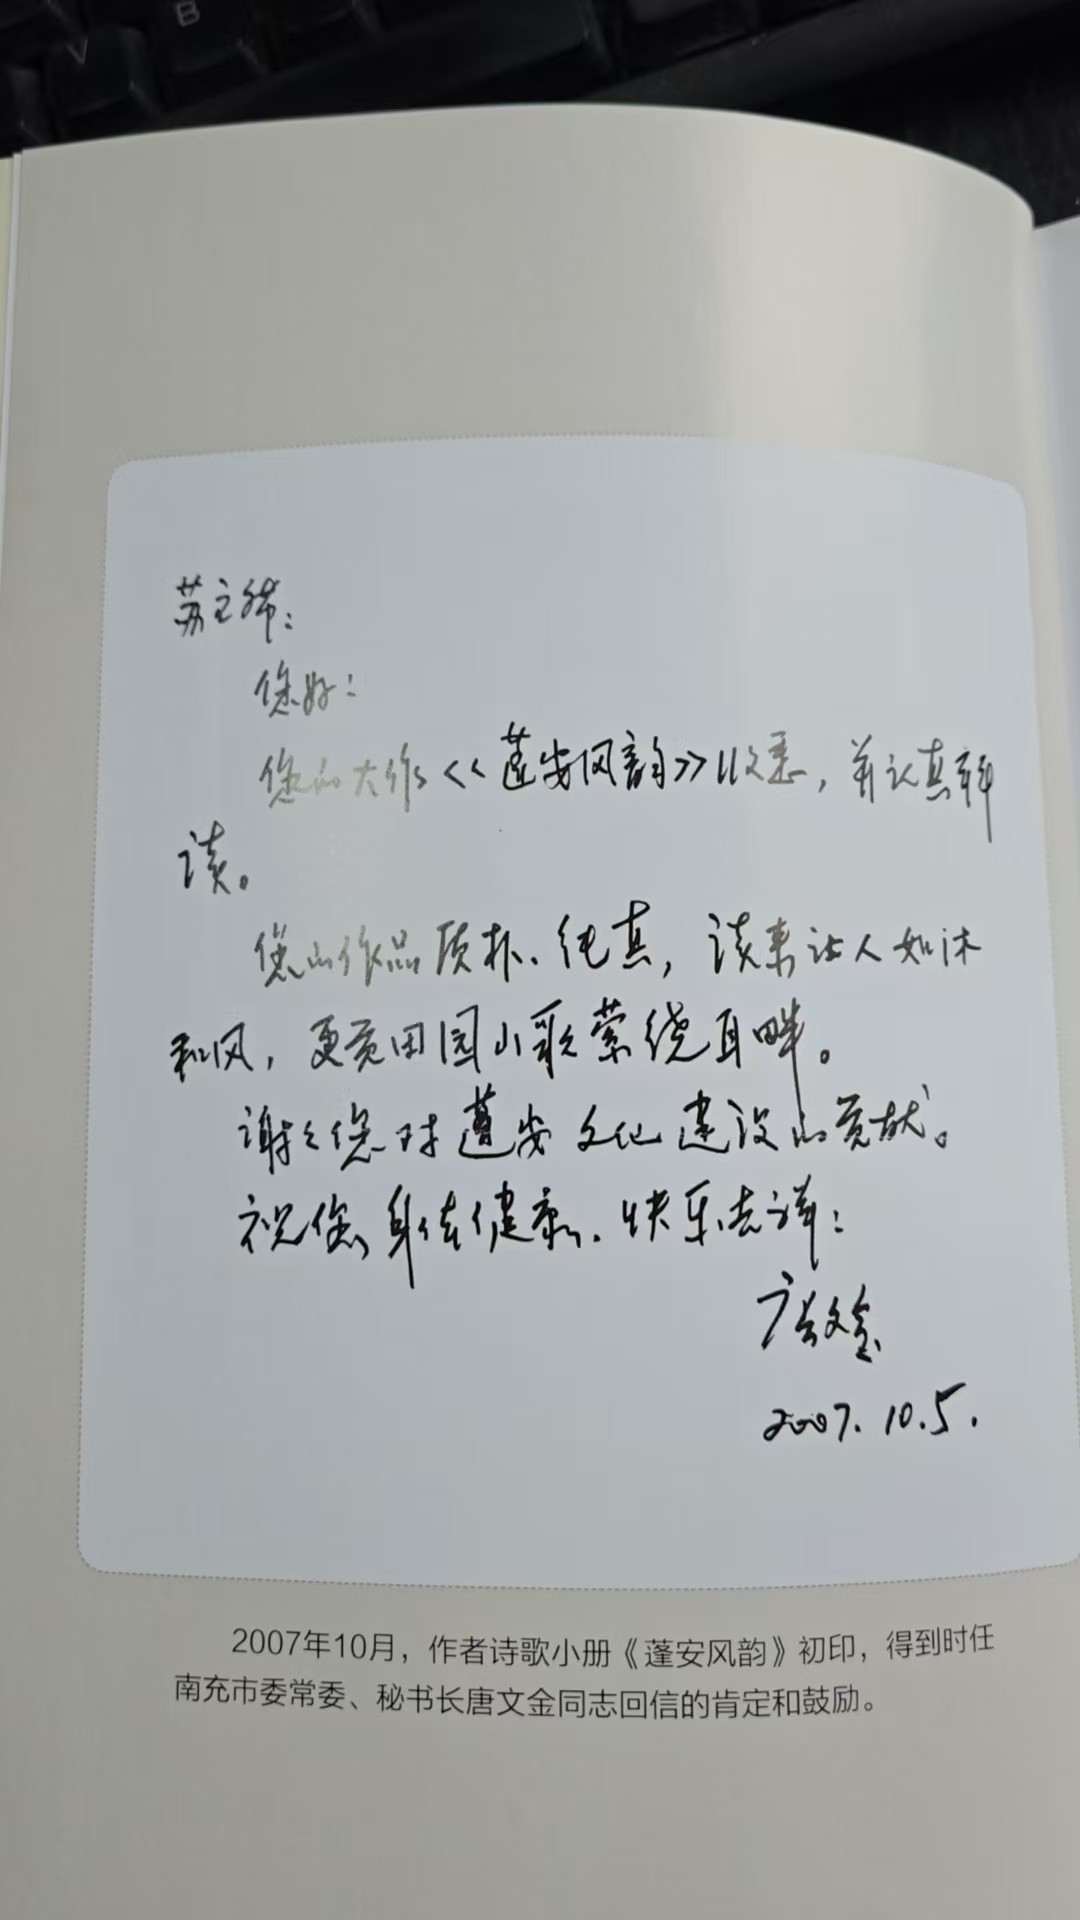 B
V
苏主席：
您好！
您的大作<<蓬安风韵>>收悉，并认真拜
读。
您的作品质朴、纯真，读来让人如沐
和风，更觉田园小歌萦绕耳畔。
谢谢您对蓬安文化建设的贡献。
祝您身体健康、快乐吉祥！
唐文金
2007.10.5.
2007年10月，作者诗歌小册《蓬安风韵》初印，得到时任
南充市委常委、秘书长唐文金同志回信的肯定和鼓励。